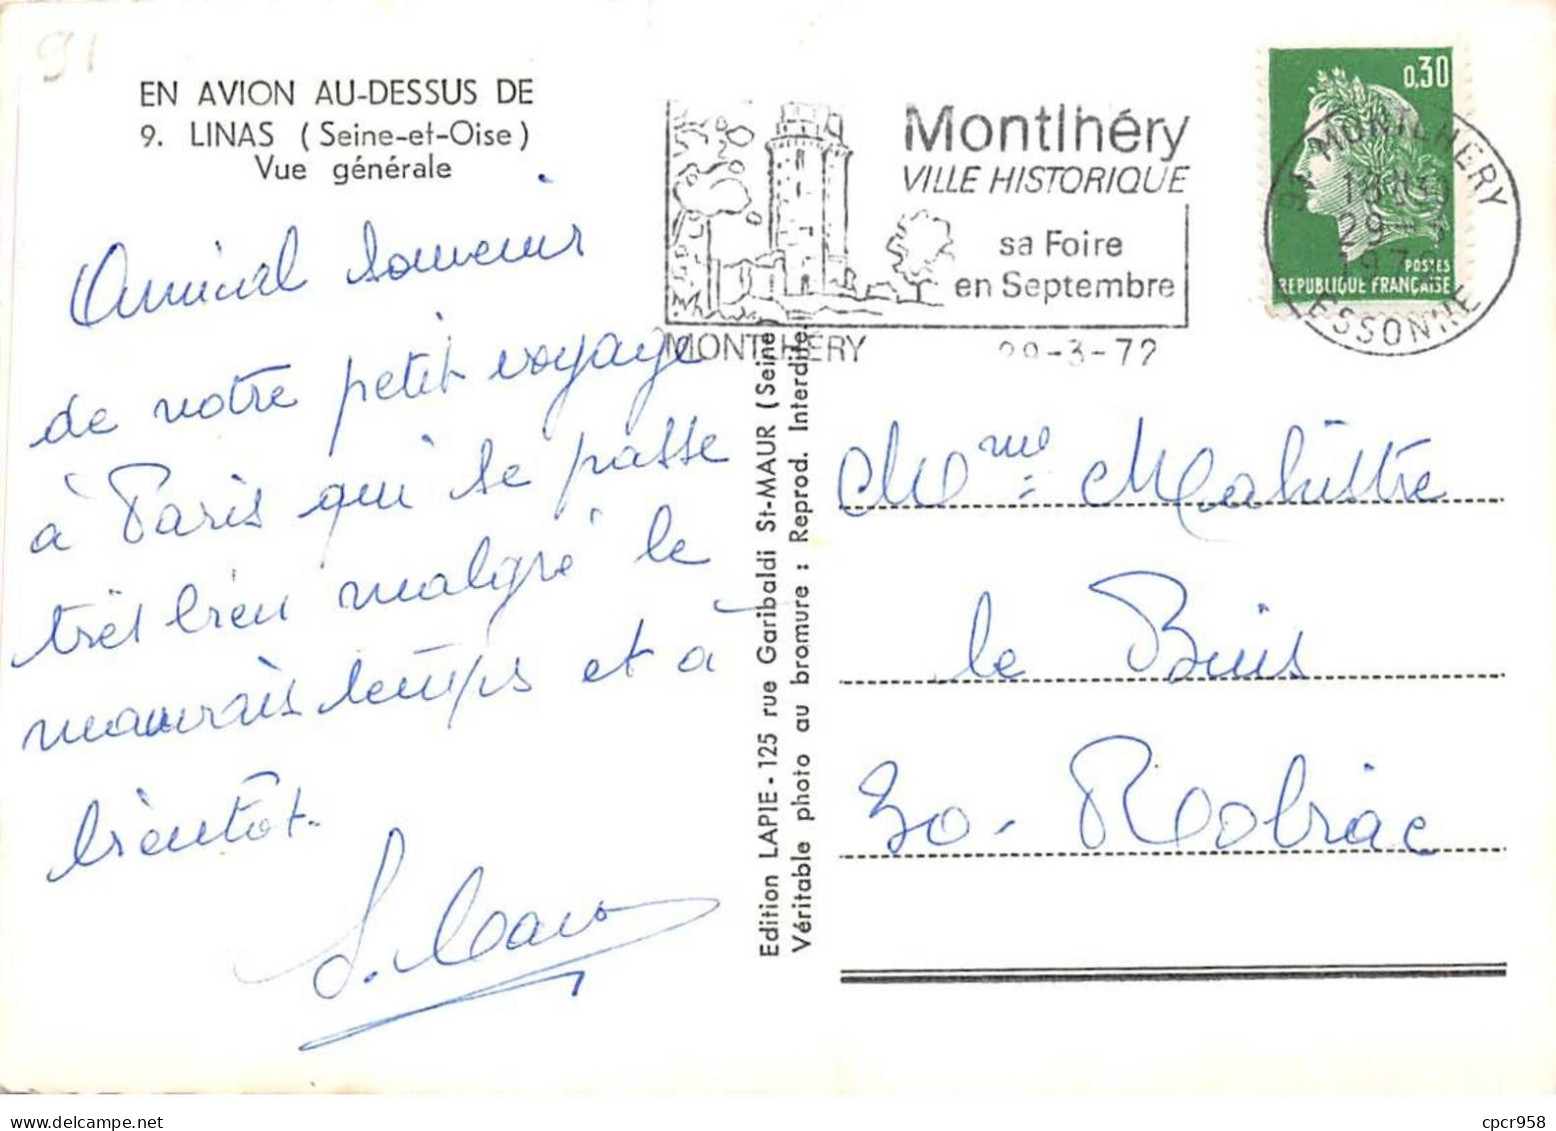 91
EN AVION AU-DESSUS DE
9. LINAS (Seine-et-Oise)
Vue générale
Amical souvenir
de notre petit voyage
à Paris qui se passe
très bien malgré le
mauvais temps et à
bientôt.
Montlhéry
VILLE HISTORIQUE
sa Foire
en Septembre
MONTLHERY 29-3-72
0,30
POSTES
REPUBLIQUE FRANÇAISE
91 MONTLHERY
ESSONNE
Edition LAPIE - 125 rue Garibaldi St-MAUR (Seine
Véritable photo au bromure : Reprod. Interdite.
Mme Mahistre
le Buis
30 - Robiac
cpcr958